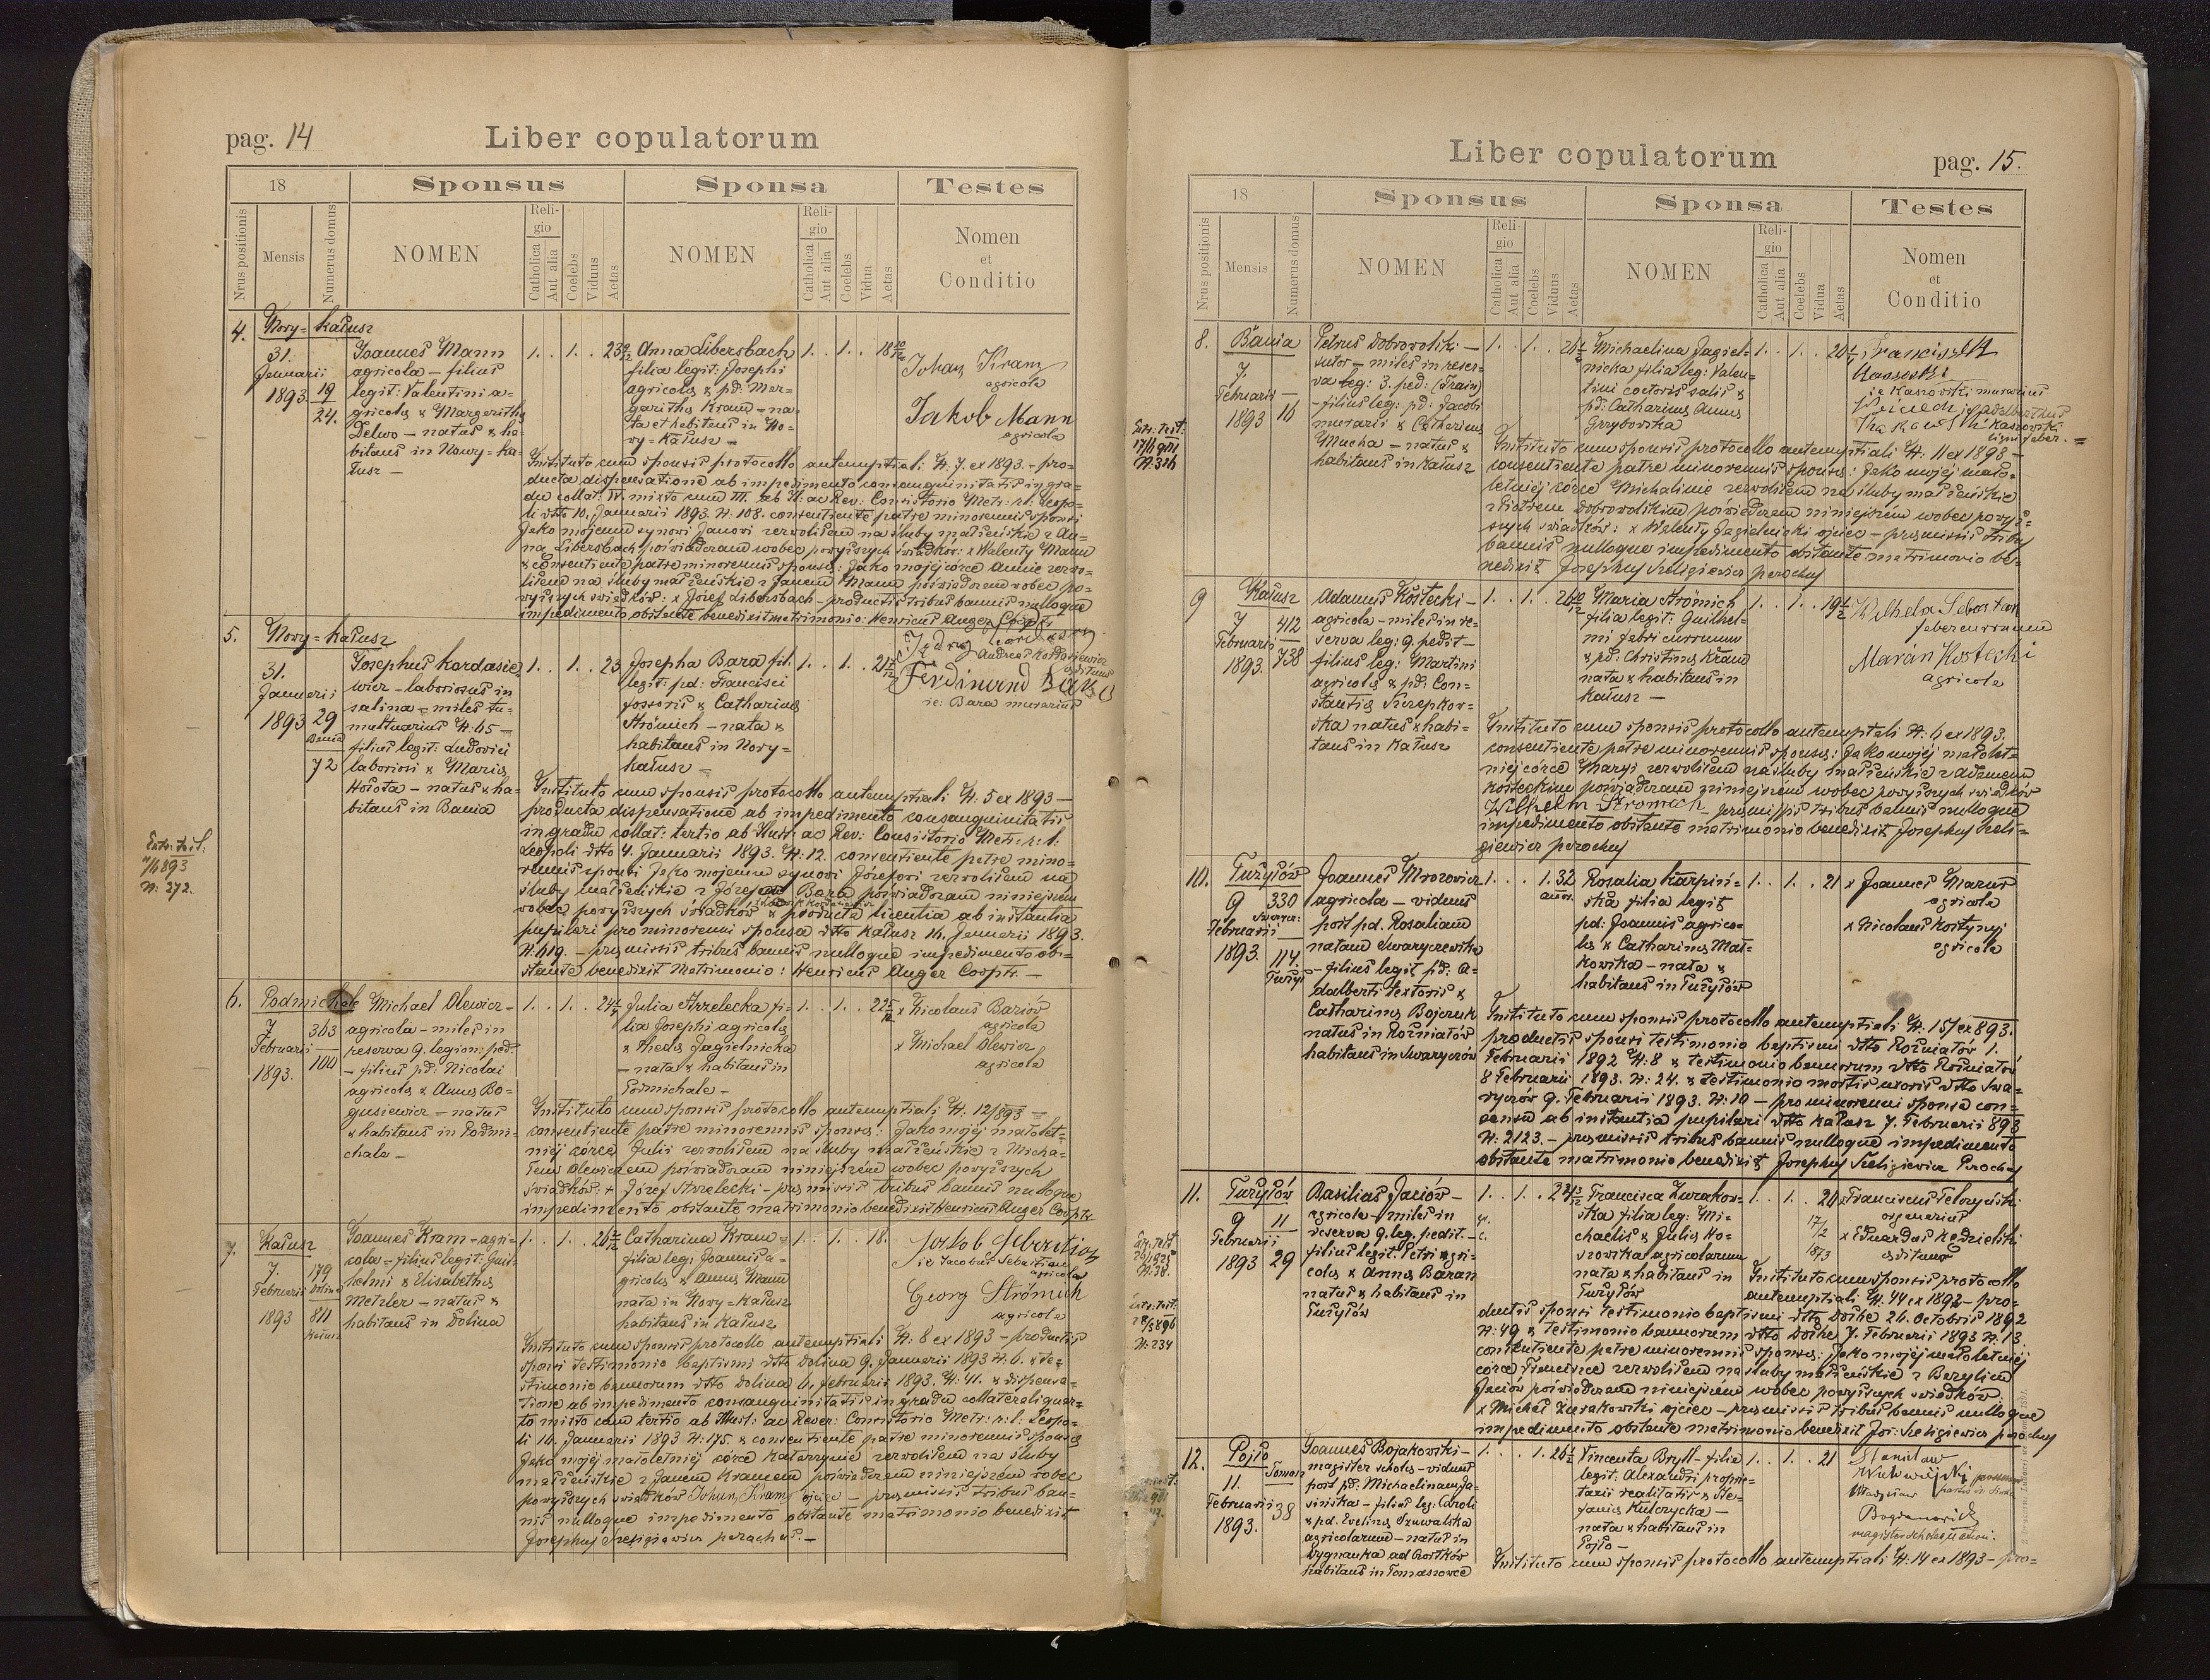 pag. 14
Liber copulatorum
18
Sponsus
Sponsa
Testes
Nrus positionis
Mensis
Numerus domus
NOMEN
Religio
Catholica
Aut alia
Coelebs
Viduus
Aetas
NOMEN
Religio
Catholica
Aut alia
Coelebs
Vidua
Aetas
Nomen
et
Conditio
4.
Nowy=Kałusz
31.
Januarii
1893
19
24.
Joannes Mann
agricola – filius
legit: Valentini a=
gricolae & Margerithae
Delwo – natus & ha=
bitans in Nowy=Ka=
łusz –
1. . 1. .
Anna Libersbach
filia legit: Josephi
agricolae & pd: Mar=
garithae Kram – na=
ta et habitans in No=
wy=Kałusz –
1. . 1. .
Johan Kram
agricola
Jakob Mann
agricola
Instituto cum sponsis protocollo antenuptiali N. 7. ex 1893. – pro=
ducta dispensatione ab impedimento consanguinitatis in gra=
du collat: IV. mixto cum III. ab Il. ac Rev: Consistorio Metr: r.l. Leopo=
li dtto 10. Januarii 1893. N. 108. consentiente patre minorennis sponsi
Jako mojemu synowi Janowi zezwoliłem na śluby małżeńskie z An=
ną Libersbach poświadczam wobec powyższych świadków: x Walenty Mann
& consentiente patre minorennis sponsae: Jako mojej córce Annie zezwo=
liłem na śluby małżeńskie z Janem Mann poświadczam wobec po=
wyższych świadków: x Józef Libersbach – productis tribus bannis nulloque
impedimento obstante benedixit matrimonio: Henricus Auger Coop.
5.
Nowy=Kałusz
31.
Januarii
1893
29
Bania
72
Josephus Kordasie=
wicz – laboriosus in
salina – miles tu=
multuarius N. 65 –
filius legit: Ludovici
laboriosi & Mariae
Hołota – natus & ha=
bitans in Bania
1. . 1. . 23
Josepha Bara fil.
legit: pd: Francisci
fossoris & Catharinae
Strömich – nata &
habitans in Nowy=
Kałusz –
1. . 1. .
Andreas Kordasiewicz
Ferdinand Bara
ie: Bara murarius
Instituto cum sponsis protocollo antenuptiali N. 5 ex 1893 –
producta dispensatione ab impedimento consanguinitatis
in gradu collat: tertio ab Illustr. ac Rev: Consistorio Metr: r: l:
Leopoli dtto 4. Januarii 1893. N. 12. consentiente patre mino=
rennis sponsi Jako mojemu synowi Józefowi zezwoliłem na
śluby małżeńskie z Józefą Bara poświadczam niniejszem
wobec powyższych świadków & producta licentia ab instantia
pupilari pro minorenni sponsa dtto Kałusz 16. Januarii 1893.
N. 619. – praemissis tribus bannis nulloque impedimento ob=
stante benedixit Matrimonio: Henricus Auger Cooptr. –
6.
Podmichale
7
Februarii
1893.
363
100
Michael Olewicz –
agricola – miles in
reserva 9. legion: ped:
– filius pd: Nicolai
agricolae & Annae Bo=
gusiewicz – natus
& habitans in Podmi=
chale –
1. . 1. .
Julia Strzelecka fi=
lia Josephi agricolae
& Theclae Jagielnicka
– nata & habitans in
Podmichale –
1. . 1. .
x Nicolaus Bariów
agricola
x Michael Olewicz
agricola
Instituto cum sponsis protocollo antenuptiali N. 12/893 –
consentiente patre minorennis sponsae: Jako mojej małolet=
niej córce Julii zezwoliłem na śluby małżeńskie z Micha=
łem Olewiczem poświadczam niniejszem wobec powyższych
świadków: + Józef Strzelecki – praemissis tribus bannis nulloque
impedimento obstante matrimonio benedixit Henricus Auger Cooptr.
7.
Kałusz
7.
Februarii
1893
179
Dolina
811
Kałusz
Joannes Kram – agri=
cola – filius legit: Guil=
helmi & Elisabethae
Metzler – natus &
habitans in Dolina
1. . 1. .
Catharina Kram –
filia leg: Joannis a=
gricolae & Annae Mann
nata in Nowy=Kałusz
habitans in Kałusz
1. . 1. . 18.
Jakob Sebastian
ie Jacobus Sebastian
agricola
Georg Strömich
agricola
Instituto cum sponsis protocollo antenuptiali N. 8 ex 1893 – productis
sponsi testimonio baptismi dtto Dolina 9. Januarii 1893 N. 6. & te=
stimonio bannorum dtto Dolina 6. februarii 1893. N. 41. & dispensa=
tione ab impedimento consanguinitatis in gradu collaterali quar=
to mixto cum tertio ab Illust: ac Rever: Consistorio Metr: r: l. Leopo=
li 16. Januarii 1893 N. 175. & consentiente patre minorennis sponsae
Jako mojej małoletniej córce Katarzynie zezwoliłem na śluby
małżeńskie z Janem Kramem poświadczam niniejszem wobec
powyższych świadków Johan Kram ojciec – praemissis tribus ban=
nis nulloque impedimento obstante matrimonio benedixit
Josephus Szeligiewicz parochus. –
Extr: test:
N. 272.
pag. 15.
Liber copulatorum
18
Sponsus
Sponsa
Testes
Nrus positionis
Mensis
Numerus domus
NOMEN
Religio
Catholica
Aut alia
Coelebs
Viduus
Aetas
NOMEN
Religio
Catholica
Aut alia
Coelebs
Vidua
Aetas
Nomen
et
Conditio
8.
Bania
7.
Februarii
1893
16
Petrus Dobrowolski –
sutor – miles in reser=
va leg: 3. ped: (Train)
– filius leg: pd: Jacobi
murarii & Catharinae
Mucha – natus &
habitans in Kałusz
1. . 1. .
Michaelina Jagiel=
nicka filia leg: Valen=
tini coctoris salis &
pd: Catharinae Annae
Grzybowska
1. . 1. .
Franciszek
Kassowski
ie Kassowski murarius
Instituto cum sponsis protocollo antenuptiali N. 11 ex 1893 –
consentiente patre minorennis sponsae: Jako mojej mało=
letniej córce Michalinie zezwoliłem na śluby małżeńskie
z Piotrem Dobrowolskim poświadczam niniejszem wobec powyż=
szych świadków: x Walenty Jagielnicki ojciec – praemissis tribus
bannis nulloque impedimento obstante matrimonio be=
nedixit Josephus Szeligiewicz parochus
9
Kałusz
7
Februarii
1893.
412
738
Adamus Kostecki –
agricola – miles in re=
serva leg: 9. pedit –
filius leg: Martini
agricolae & pd: Con=
stantiae Szczepkow=
ska natus & habi=
tans in Kałusz
1. . 1. .
Maria Strömich
filia legit: Guilhel=
mi fabri currum
& pd: Christinae Kram
nata & habitans in
Kałusz –
1. . 1. .
Wilhelm Sebastian
faber currum
Marcin Kostecki
agricola
Instituto cum sponsis protocollo antenuptiali N. 6 ex 1893.
consentiente patre minorennis sponsae: Jako mojej małolet=
niej córce Maryi zezwoliłem na śluby małżeńskie z Adamem
Kosteckim poświadczam niniejszem wobec powyższych świadków
Wilhelm Stromich – praemissis tribus bannis nulloque
impedimento obstante matrimonio benedixit Josephus Szeli=
giewicz parochus
10.
Tużyłów
9
Februarii
1893.
330
114.
Tużył
Joannes Mrozowicz
agricola – viduus
post pd. Rosaliam
natam Swaryczewska
– filius legit pd: A=
dalberti textoris &
Catharinae Bojczuk
natus in Rożniatów
habitans in Swaryczów
1. . . 1. 32
Rosalia Karpiń=
ska filia legit
pd: Joannis agrico=
lae & Catharinae Mat=
kowska – nata &
habitans in Tużyłów
1. . 1. . 21
x Joannes Marus
agricola
x Nicolaus Kostyny
agricola
Instituto cum sponsis protocollo antenuptiali N. 15/ex 893.
productis sponsi testimonio baptismi dtto Rożniatów 1.
Februarii 1892 N. 8 & testimonio bannorum dtto Rożniatów
8 Februarii 1893. N. 24. & testimonio mortis uxoris dtto Swa=
ryczów 9. Februarii 1893. N. 10 – pro minorenni sponsa con=
sensu ab instantia pupilari dtto Kałusz 7. Februarii 893
N. 2123. – praemissis tribus bannis nulloque impedimento
obstante matrimonio benedixit Josephus Szeligiewicz Parochus
11.
Tużyłów
9
Februarii
1893
11
29
Basilius Jaciów –
agricola – miles in
reserva 9. leg. pedit. –
filius legit: Petri agri=
colae & Annae Baran
natus & habitans in
Tużyłów
1. . 1. .
Francisca Zurakow=
ska filia leg: Mi=
chaelis & Juliae Ko=
sowska agricolarum
nata & habitans in
Tużyłów
1. . 1. . 20
17/2
1873
x Eduardus Kędzielski
Instituto cum sponsis protocollo
antenuptiali N. 44 ex 1892 – pro=
ductis sponsi testimonio baptismi dtto Dołhe 26. Octobris 1892
N. 49 & testimonio bannorum dtto Dołhe 7. Februarii 1893 N. 13
consentiente patre minorennis sponsae: Jako mojej małoletniej
córce Francisce zezwoliłem na śluby małżeńskie z Bazylim
Jaciów poświadczam niniejszem wobec powyższych świadków
x Michał Zurakowski ojciec – praemissis tribus bannis nulloque
impedimento obstante matrimonio benedixit Jos: Szeligiewicz parochus
12.
Pojło
11.
Februarii
1893.
38
Joannes Bojakowski –
magister scholae – viduus
post pd: Michaelinam Ja=
sinska – filius leg: Caroli
& pd. Evelinae Szuwalska
agricolarum – natus in
Wygnanka ad Czortków
habitans in Tomaszowce
1. . 1.
Vincenta Bryll – filia
legit: Alexandri proprie=
tarii realitatis & Ste=
faniae Kulczycka –
nata & habitans in
Pojło –
1. . 1. . 21
Stanisław
Bogdanowicz
Instituto cum sponsis protocollo antenuptiali N: 14 ex 1893 – pro=
Extr: test:
N. 316
N. 234